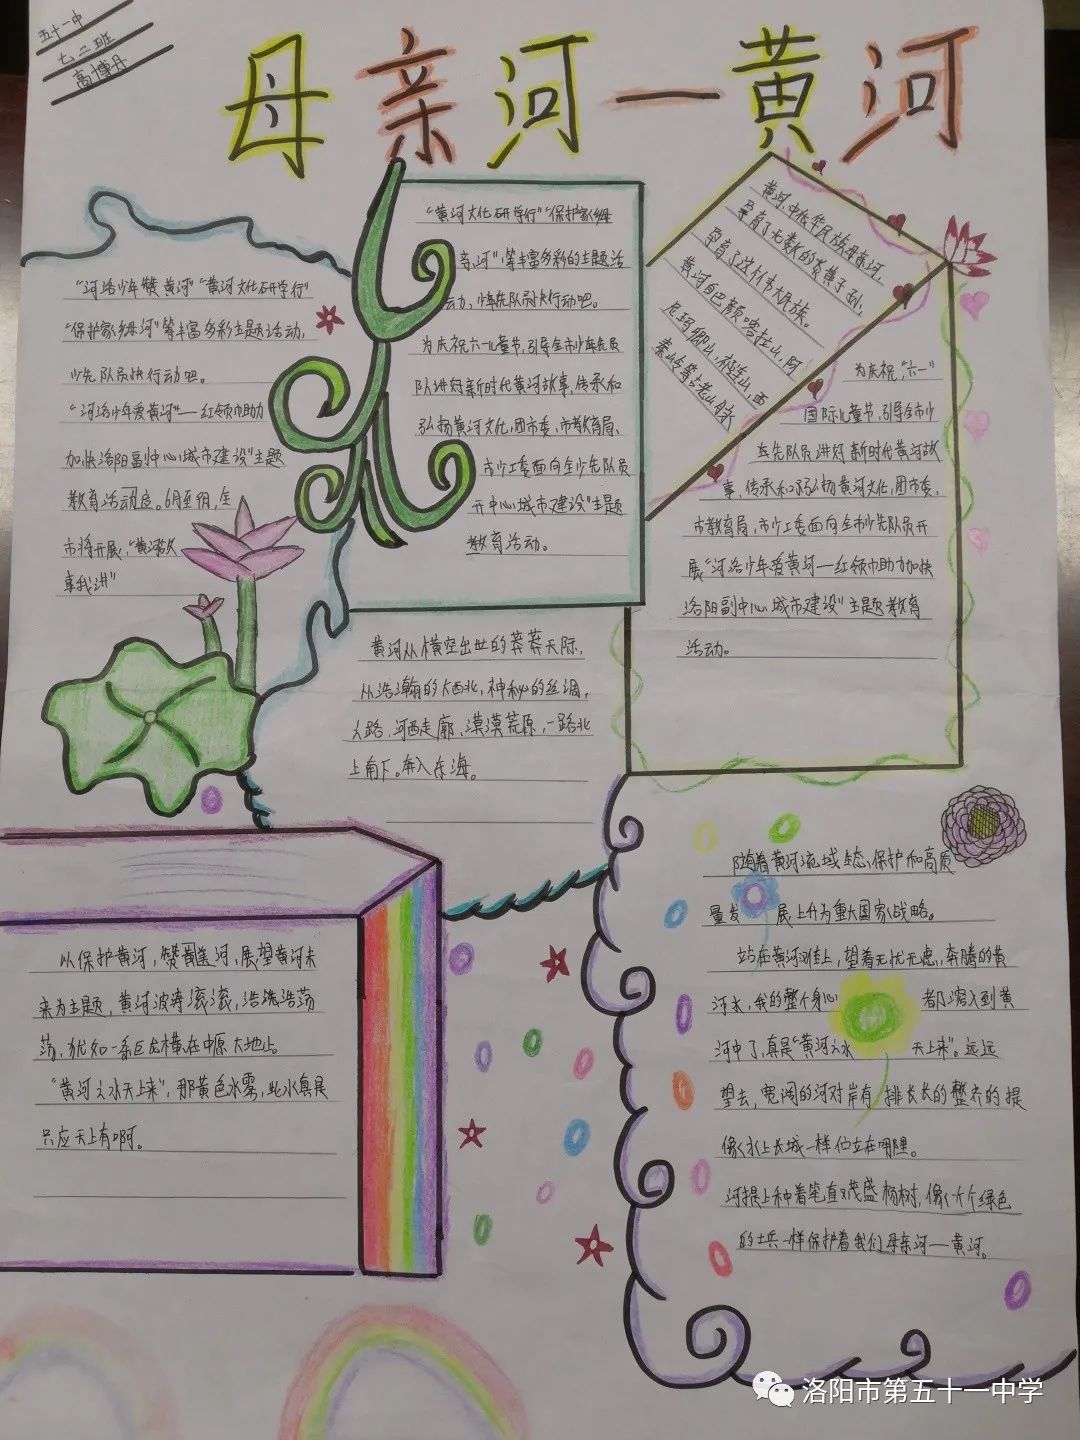 五十一中
七二班
高博丹
母亲河一黄河
"河洛少年赞黄河""黄河文化研学行"
"保护家乡母河"等丰富多彩主题活动,
少先队员快行动吧。
"河洛少年爱黄河"—红领巾助力
加快洛阳副中心城市建设"主题
教育活动
市将开展,"黄河故
事我讲"
"黄河文化研学行""保护家乡母
亲河";等丰富多彩的主题活
动,少年先队员快行动吧。
为庆祝六一儿童节,引导全市少年先
队讲好新时代黄河故事,传承和
弘扬黄河文化,团市委、市教育局、
市少工委面向全少先队员
开中心城市建设"主题
教育活动。
黄河中化华民族母亲河,
孕育了无数的炎黄子孙,
孕育了这伟大民族。
黄河自巴颜喀拉山,阿
尼玛卿山,祁连山,西
秦岭等
为庆祝,"六一"
国际儿童节,引导全市少
年先队员讲好新时代黄河故
事,传承和弘扬黄河文化,团市委,
市教育局,市少工委面向全市少先队员开
展"河洛少年爱黄河—红领巾助力加快
洛阳副中心城市建设"主题教育
活动。
黄河从横空出世的莽莽天际,
从浩瀚的大西北,神秘的丝绸,
之路,河西走廊、漠漠荒原,一路北
上南下。奔入东海。
以保护黄河,赞美黄河,展望黄河未
来为主题,黄河波涛滚滚,浩浩荡
荡,犹如一条巨龙横在中原大地上。
"黄河之水天上来",那黄色水雾,此水真是
只应天上有啊。
随着黄河流域生态,保护和高质
量发展上升为重大国家战略。
站在黄河河堤上,望着无忧无虑,奔腾的黄
河水,我的整个身心都溶入到黄
河中了,真是"黄河之水天上来"。远远
望去,宽阔的河对岸有排长长的整齐的提
像水上长城一样伫立在哪里。
河提上种着笔直又茂盛杨树,像个个绿色
的士兵一样保护着我们母亲河—黄河。
洛阳市第五十一中学